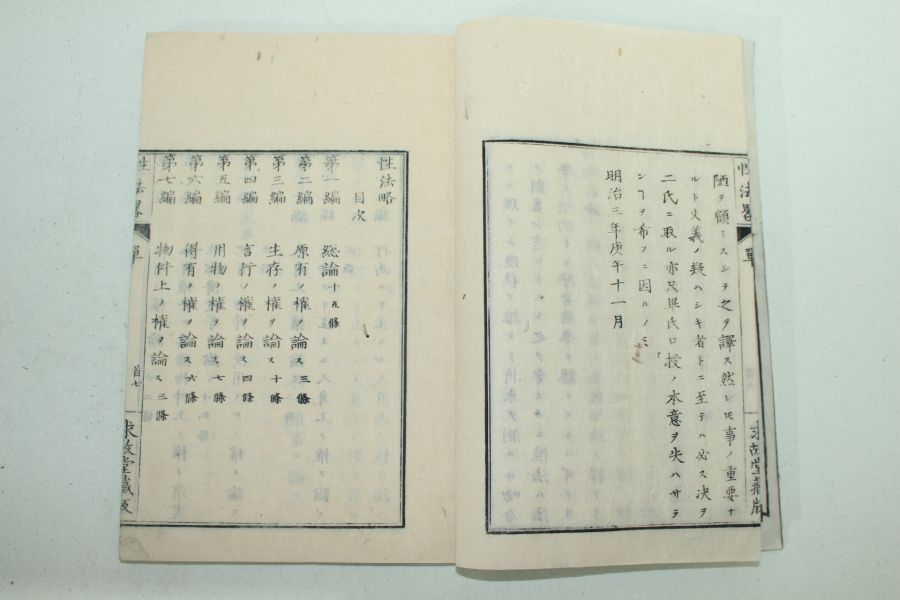 陋ヲ顧ミスシテ之ヲ譯ス然レモ事ノ重要ナ
ルト文義ノ疑ハシキ者トニ至テハ必ス决ヲ
二氏ニ取ル亦只畢氏口授ノ本意ヲ失ハサラ
ンヿヲ希フニ因ルノミ
明治三年庚午十一月
性法畧
單
求故堂藏版
性法略
目次
第一編 総論十五條
第二編 原有ノ權ヲ論ス三條
第三編 生存ノ權ヲ論ス十條
第四編 言行ノ權ヲ論ス四條
第五編 用物ノ權ヲ論ス七條
第六編 得有ノ權ヲ論ス六條
第七編 物件上ノ權ヲ論ス三條
性法畧
單
首七
求故堂藏版